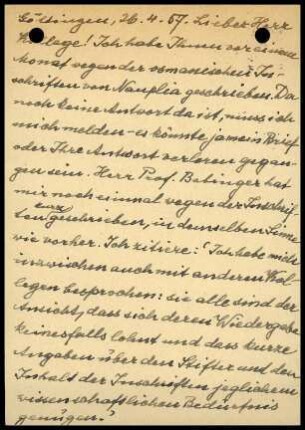 Göttingen, 26.4.67. Lieber Herr
Kollege! Ich habe Ihnen vor einem
Monat wegen der osmanischen In-
schriften von Nauplia geschrieben. Da
noch keine Antwort da ist, muss ich
mich melden - es könnte ja mein Brief
oder Ihre Antwort verloren gegan-
gen sein. Herr Prof. Babinger hat
mir noch einmal wegen der Inschrif-
ten geschrieben, in demselben Sinne
wie vorher. Ich zitiere: "Ich habe mich
inzwischen auch mit anderen Kol-
legen besprochen: sie alle sind der
Ansicht, dass sich deren Wiedergabe
keinesfalls lohnt und dass kurze
Angaben über den Stifter und den
Inhalt der Inschriften jeglichem
wissenschaftlichen Bedürfnis
genügen."